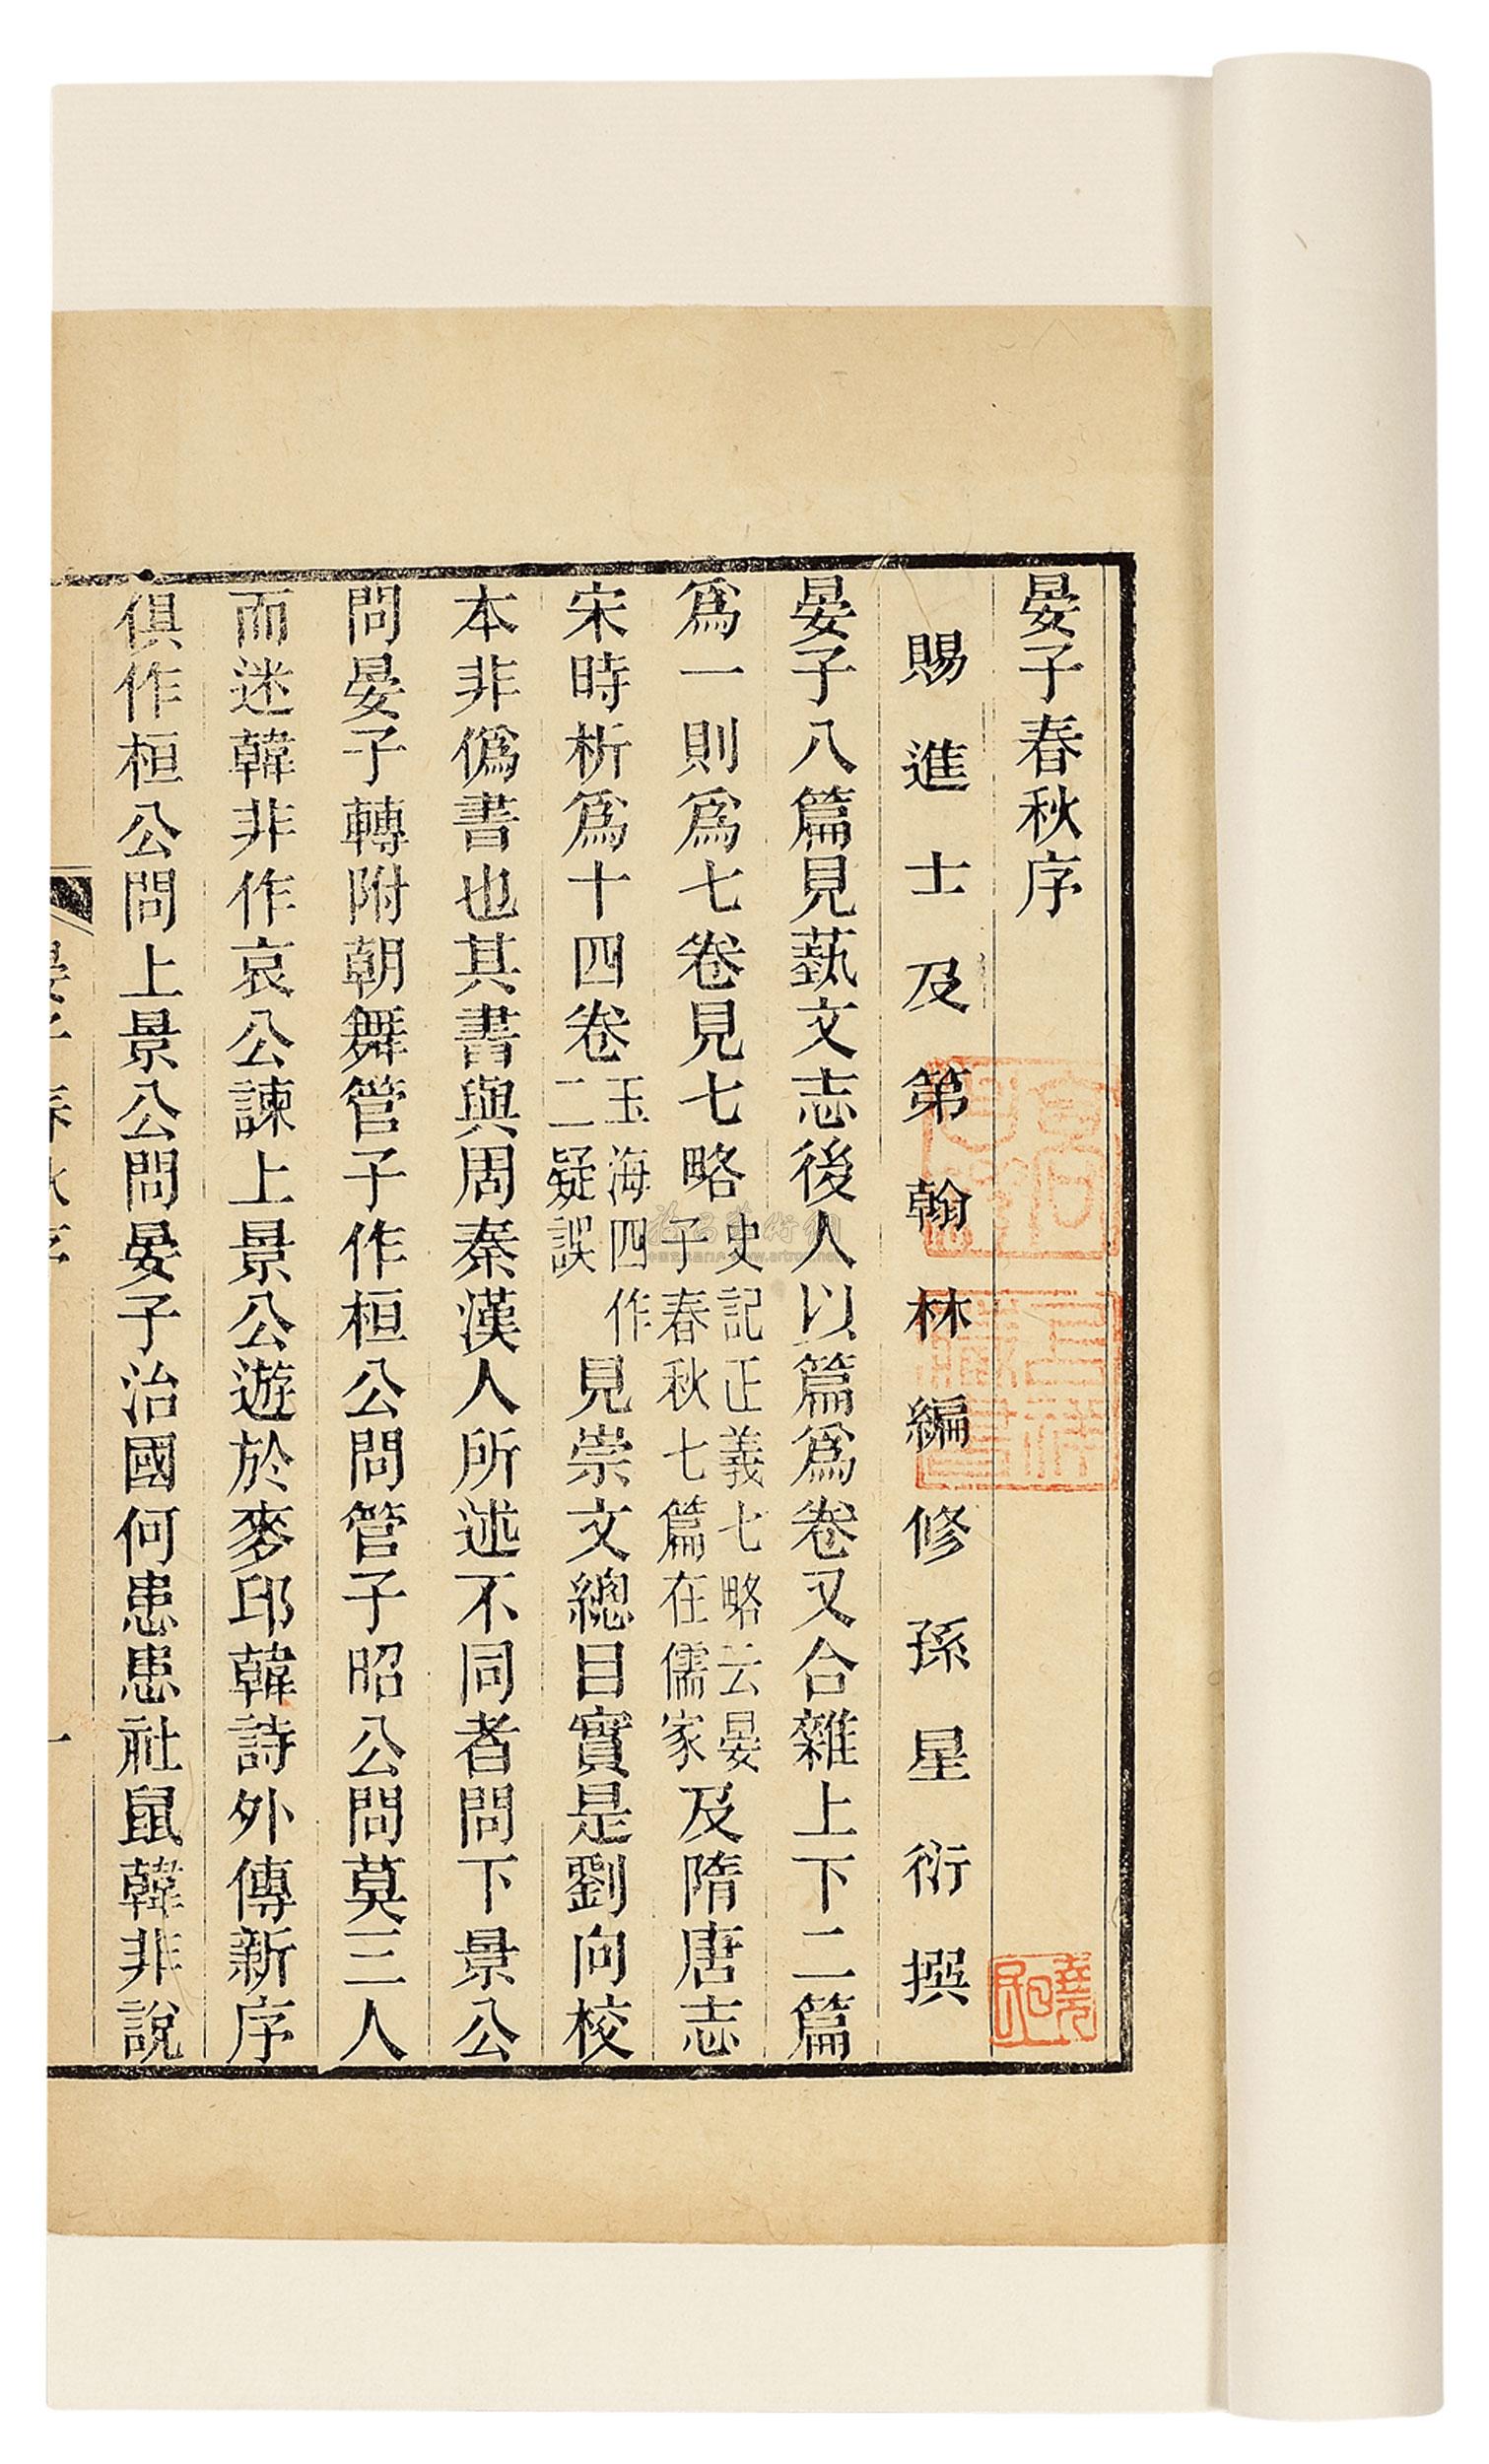 晏子春秋序
賜進士及第翰林編修孫星衍撰
晏子八篇見藝文志後人以篇爲卷又合雜上下二篇
爲一則爲七卷見七略史記正義七略云晏子春秋七篇在儒家及隋唐志
宋時析爲十四卷玉海四作二疑誤見崇文總目實是劉向校
本非僞書也其書與周秦漢人所述不同者問下景公
問晏子轉附朝舞管子作桓公問管子昭公問莫三人
而迷韓非作哀公諫上景公遊於麥邱韓詩外傳新序
俱作桓公問上景公問晏子治國何患患社鼠韓非說